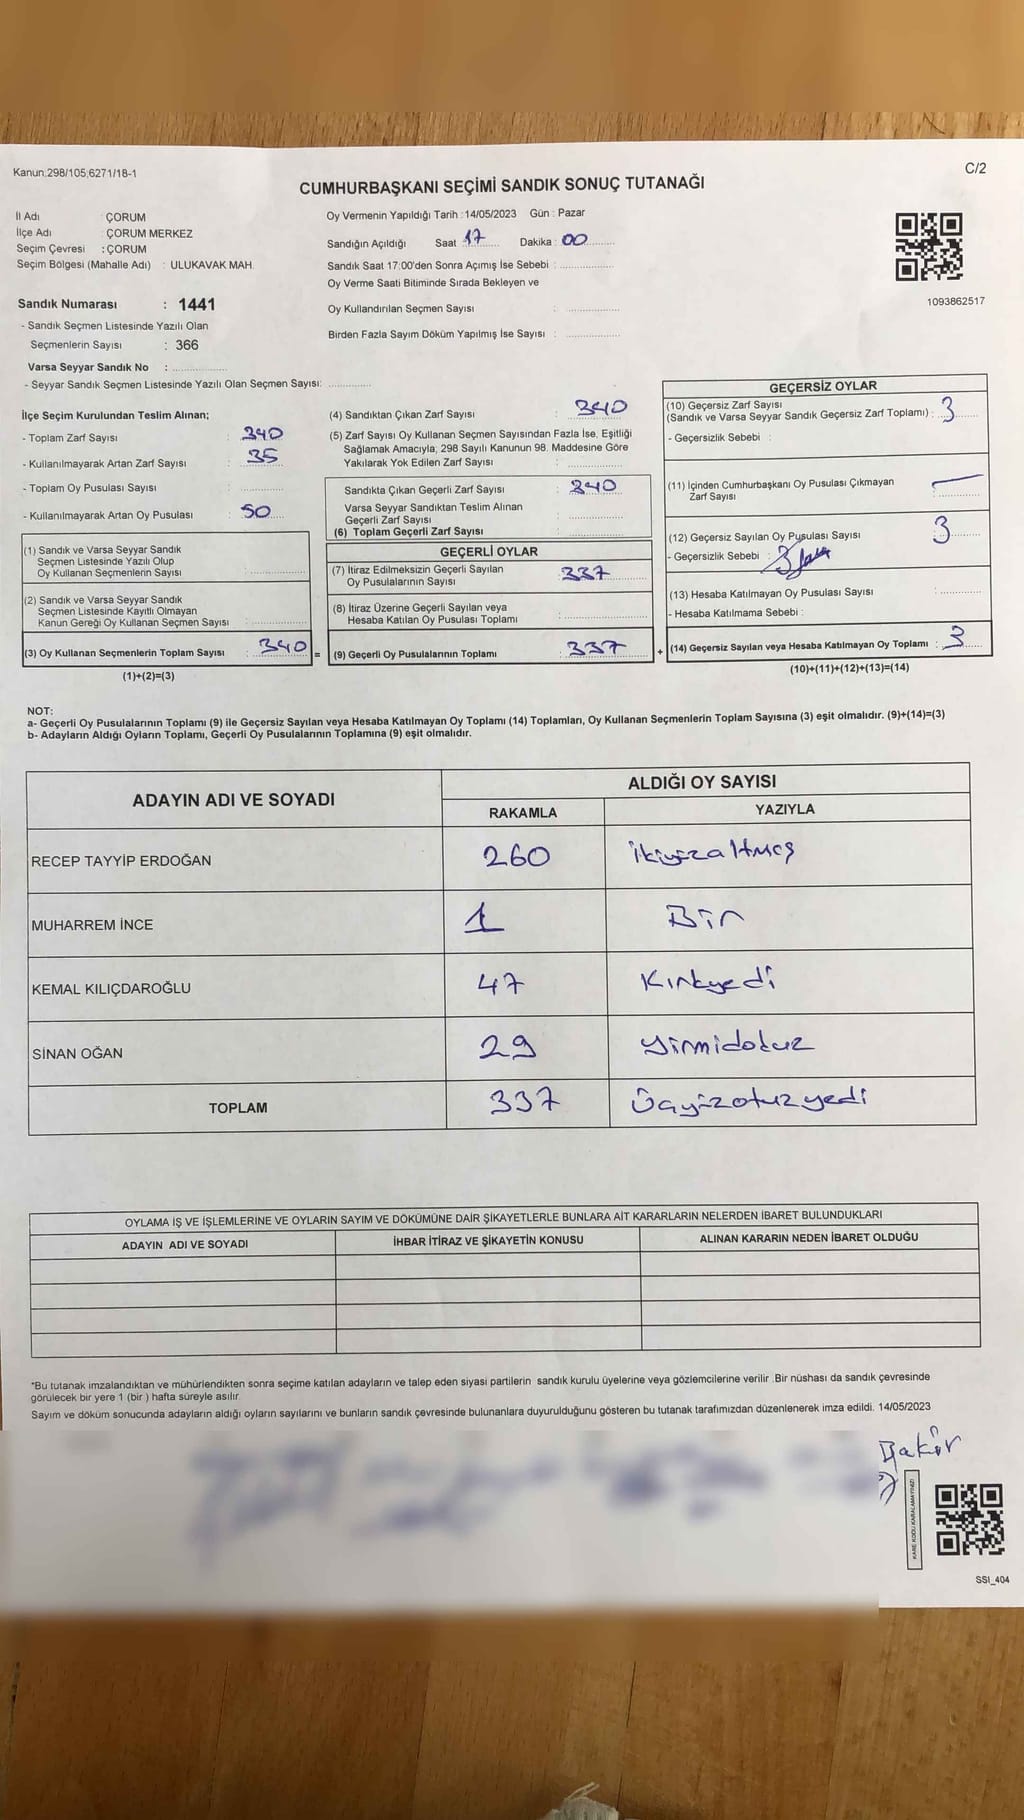 Kanun;298/105;6271/18-1
C/2
CUMHURBAŞKANI SEÇİMİ SANDIK SONUÇ TUTANAĞI
İl Adı : ÇORUM
İlçe Adı : ÇORUM MERKEZ
Seçim Çevresi : ÇORUM
Seçim Bölgesi (Mahalle Adı) : ULUKAVAK MAH.
Sandık Numarası : 1441
- Sandık Seçmen Listesinde Yazılı Olan
Seçmenlerin Sayısı : 366
Varsa Seyyar Sandık No :
- Seyyar Sandık Seçmen Listesinde Yazılı Olan Seçmen Sayısı:
Oy Vermenin Yapıldığı Tarih :14/05/2023 Gün : Pazar
Sandığın Açıldığı Saat 17 Dakika : 00
Sandık Saat 17:00'den Sonra Açımış İse Sebebi :
Oy Verme Saati Bitiminde Sırada Bekleyen ve
Oy Kullandırılan Seçmen Sayısı :
Birden Fazla Sayım Döküm Yapılmış İse Sayısı :
1093862517
İlçe Seçim Kurulundan Teslim Alınan;
- Toplam Zarf Sayısı : 340
- Kullanılmayarak Artan Zarf Sayısı : 35
- Toplam Oy Pusulası Sayısı :
- Kullanılmayarak Artan Oy Pusulası : 50
(1) Sandık ve Varsa Seyyar Sandık
Seçmen Listesinde Yazılı Olup
Oy Kullanan Seçmenlerin Sayısı :
(2) Sandık ve Varsa Seyyar Sandık
Seçmen Listesinde Kayıtlı Olmayan
Kanun Gereği Oy Kullanan Seçmen Sayısı :
(3) Oy Kullanan Seçmenlerin Toplam Sayısı : 340 =
(1)+(2)=(3)
(4) Sandıktan Çıkan Zarf Sayısı : 340
(5) Zarf Sayısı Oy Kullanan Seçmen Sayısından Fazla İse, Eşitliği
Sağlamak Amacıyla; 298 Sayılı Kanunun 98. Maddesine Göre
Yakılarak Yok Edilen Zarf Sayısı :
Sandıkta Çıkan Geçerli Zarf Sayısı : 340
Varsa Seyyar Sandıktan Teslim Alınan
Geçerli Zarf Sayısı :
(6) Toplam Geçerli Zarf Sayısı :
GEÇERLİ OYLAR
(7) İtiraz Edilmeksizin Geçerli Sayılan
Oy Pusulalarının Sayısı : 337
(8) İtiraz Üzerine Geçerli Sayılan veya
Hesaba Katılan Oy Pusulası Toplamı :
(9) Geçerli Oy Pusulalarının Toplamı : 337 +
GEÇERSİZ OYLAR
(10) Geçersiz Zarf Sayısı
(Sandık ve Varsa Seyyar Sandık Geçersiz Zarf Toplamı) : 3
- Geçersizlik Sebebi :
(11) İçinden Cumhurbaşkanı Oy Pusulası Çıkmayan
Zarf Sayısı : —
(12) Geçersiz Sayılan Oy Pusulası Sayısı : 3
- Geçersizlik Sebebi :
(13) Hesaba Katılmayan Oy Pusulası Sayısı :
- Hesaba Katılmama Sebebi :
(14) Geçersiz Sayılan veya Hesaba Katılmayan Oy Toplamı : 3
(10)+(11)+(12)+(13)=(14)
NOT:
a- Geçerli Oy Pusulalarının Toplamı (9) ile Geçersiz Sayılan veya Hesaba Katılmayan Oy Toplamı (14) Toplamları, Oy Kullanan Seçmenlerin Toplam Sayısına (3) eşit olmalıdır. (9)+(14)=(3)
b- Adayların Aldığı Oyların Toplamı, Geçerli Oy Pusulalarının Toplamına (9) eşit olmalıdır.
ADAYIN ADI VE SOYADI ALDIĞI OY SAYISI
RAKAMLA YAZIYLA
RECEP TAYYİP ERDOĞAN 260 ikiyüzaltmış
MUHARREM İNCE 1 Bir
KEMAL KILIÇDAROĞLU 47 Kırkyedi
SİNAN OĞAN 29 yirmidokuz
TOPLAM 337 Üçyüzotuzyedi
OYLAMA İŞ VE İŞLEMLERİNE VE OYLARIN SAYIM VE DÖKÜMÜNE DAİR ŞİKAYETLERLE BUNLARA AİT KARARLARIN NELERDEN İBARET BULUNDUKLARI
ADAYIN ADI VE SOYADI İHBAR İTİRAZ VE ŞİKAYETİN KONUSU ALINAN KARARIN NEDEN İBARET OLDUĞU
*Bu tutanak imzalandıktan ve mühürlendikten sonra seçime katılan adayların ve talep eden siyasi partilerin sandık kurulu üyelerine veya gözlemcilerine verilir .Bir nüshası da sandık çevresinde
görülecek bir yere 1 (bir ) hafta süreyle asılır.
Sayım ve döküm sonucunda adayların aldığı oyların sayılarını ve bunların sandık çevresinde bulunanlara duyurulduğunu gösteren bu tutanak tarafımızdan düzenlenerek imza edildi. 14/05/2023
KARE KODU KARALAMAYINIZ!
SSI_404